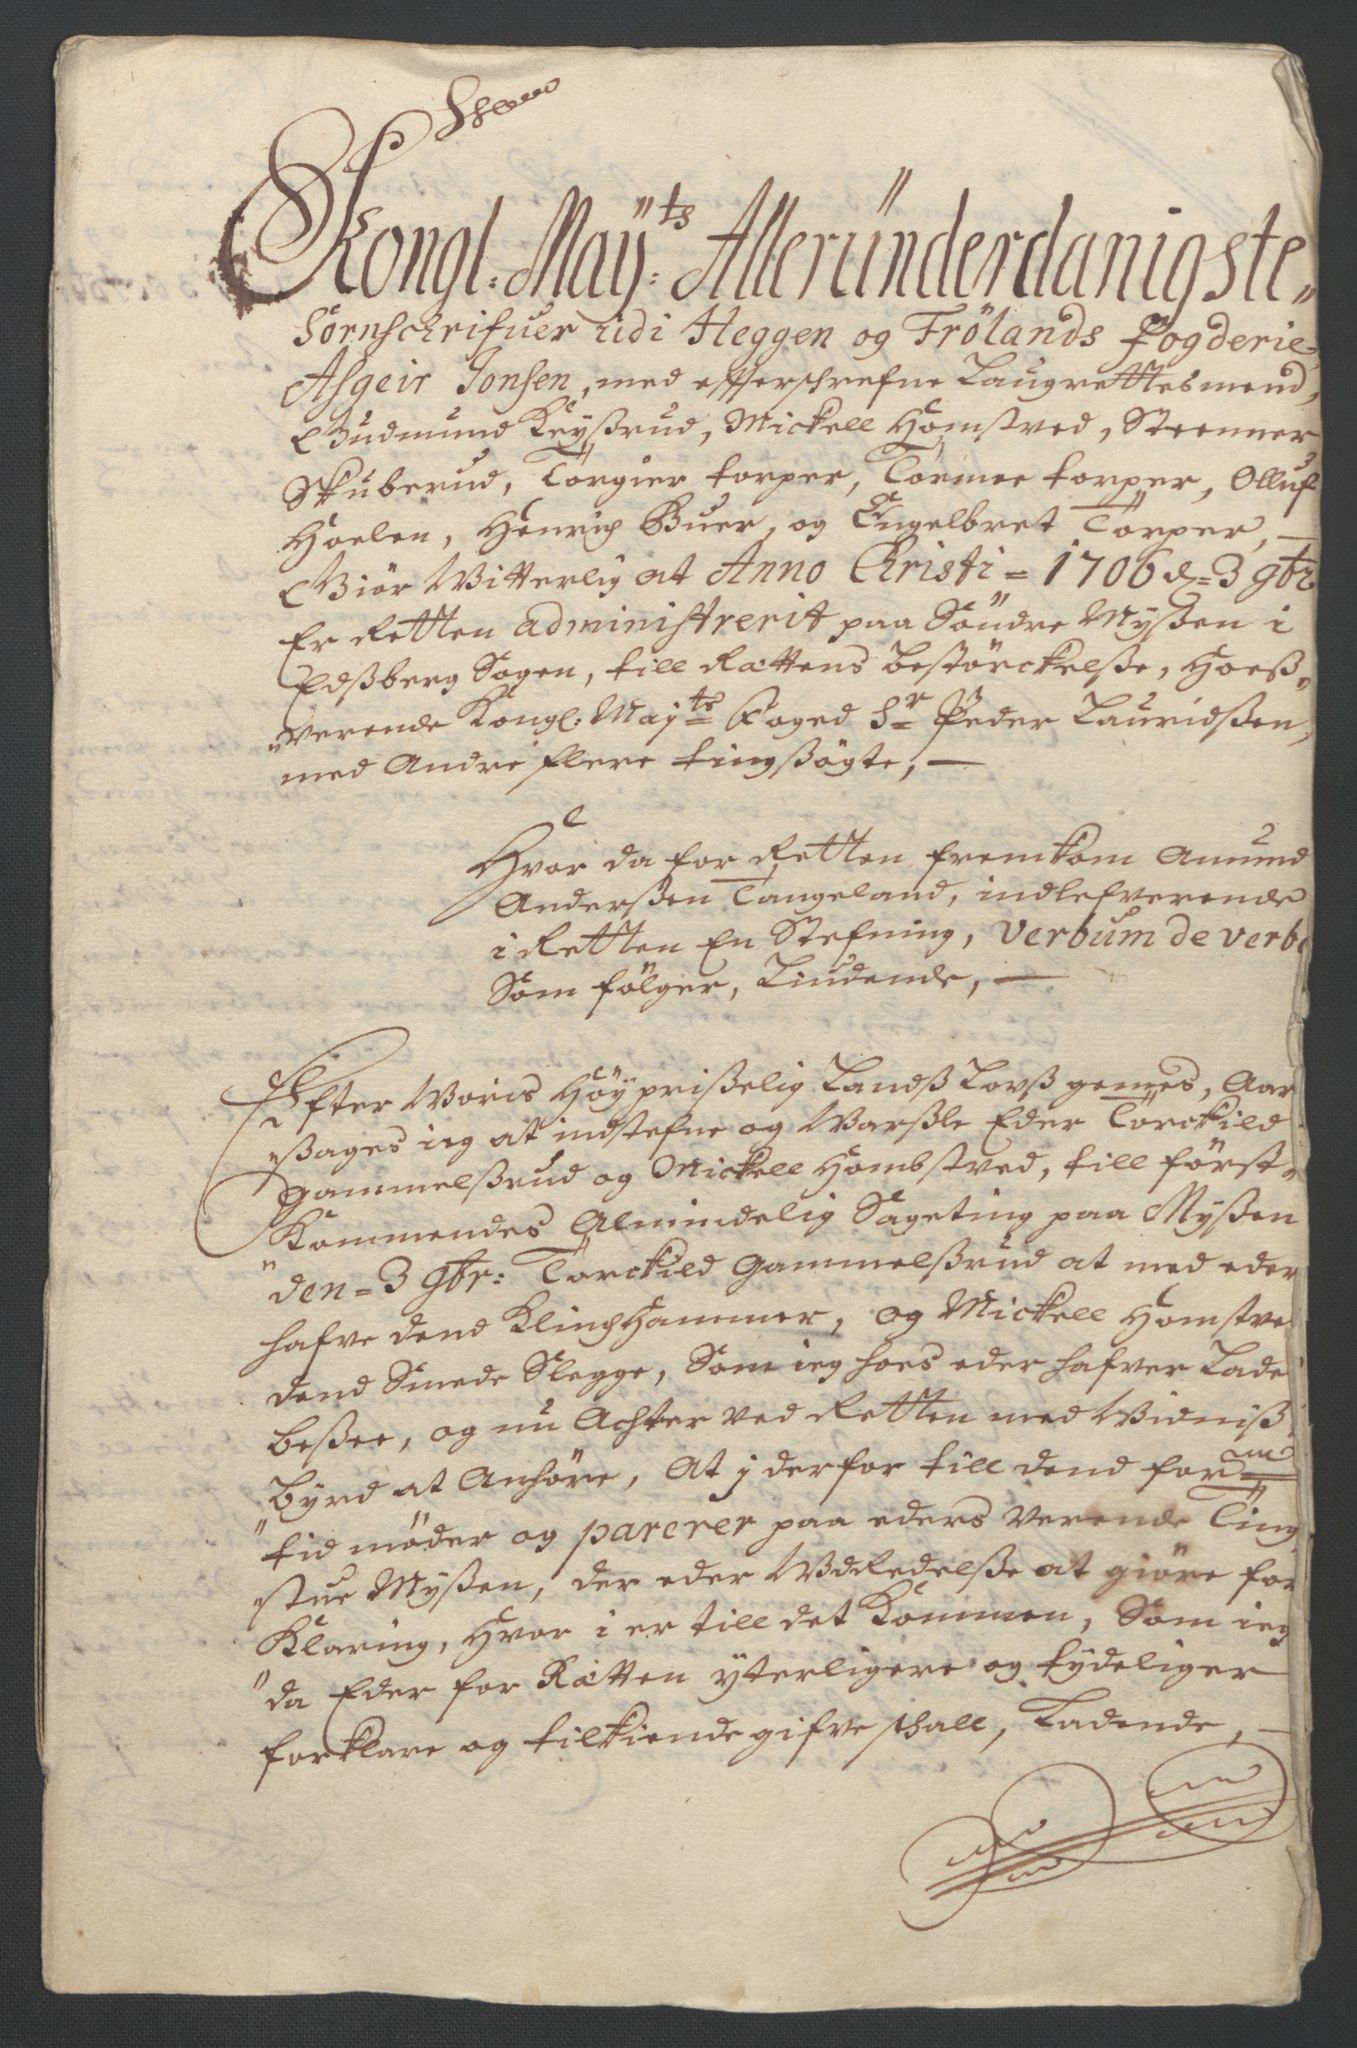 Kongl: May:ts Alleründerdanigste
Sornschrifuer udi Heggen og Frölands fogderie
Asgeir Jonsen, med efferschrefne Laugrettesmend,
Gudmund Keyßrud, Mickell Homstved, Steenner
Skuberud, Torgier torper, Tormoe torper, Olluf
Hoelen, Henrich Buer, og Engelbret Torper,
Giör Witterlig at Anno Christi = 1706 d= 3 9br
Er Retten administrerit paa Söndre Mysßen i
Edßberg Sogen, till Rættens bestörckelße, Hoeß
verende Kongl: Majts Foged Sr Peder Lauridßen,
med Andre flere tingsögte,
Hvor da for Retten fremkom Amund
Anderßen Tangeland, indlefverende
i Retten En Stefning, Verbum de verb
Som fölger, Liudende,
Efter Woris Höyprißelig Landß Lovß gemes, Aar
ßages ieg at indstefne og Warßle Eder Torckild
Gammelßrud og Mickell Hombstved, till först
Kommendes Almindelig Sageting paa Mysßen
den = 3 9br: Torckild Gammelßrud at med eder
hafve dend Klinchhammer, og Mickell Homstve
dend Smede Slegge, Som ieg hoes eder hafver Lade
beßee, og nu Achter ved Retten med Widniß
byrd at Anhöre, At j derfor till dend for
tid möder og parerer paa eders verende Ting
stue Mysßen, der eder Wdredelße at giöre for
Klaring, Hvor i er till det Kommen, Som ieg
da Eder for Rætten yterligere og tydeliger
forklare og tilkiende gifve schall, Ladende,